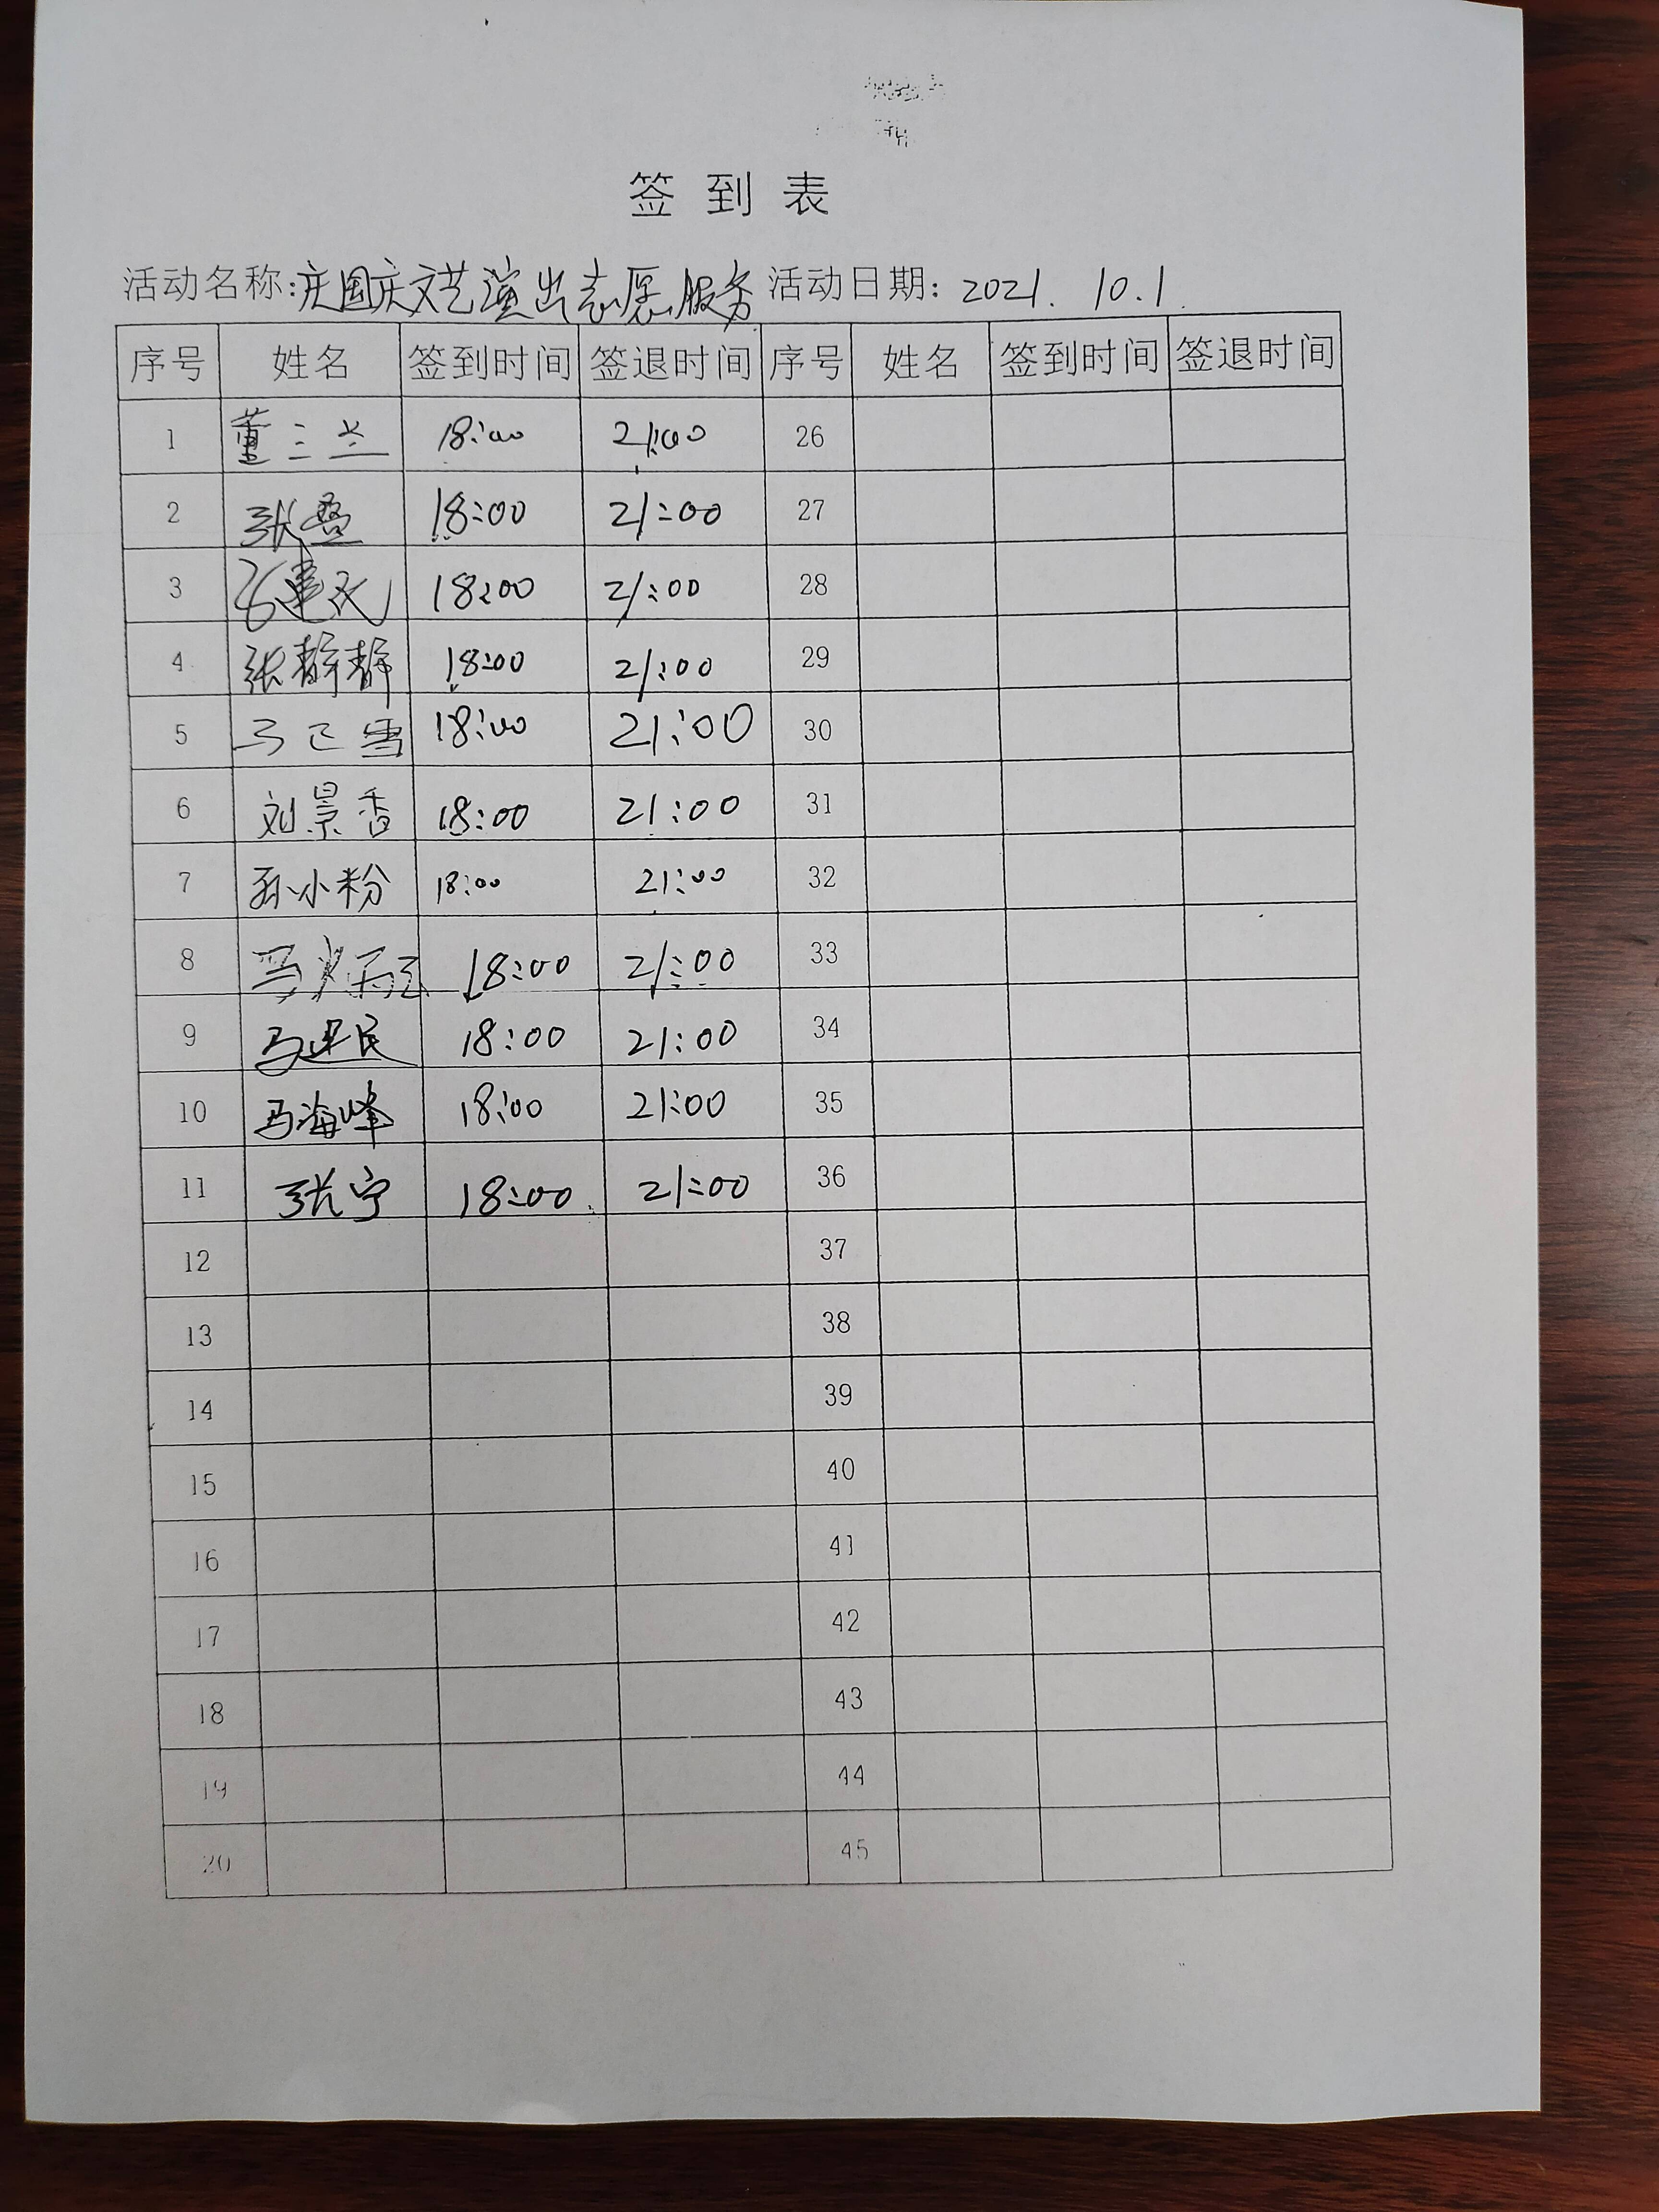 签到表
活动名称:庆国庆文艺演出志愿服务 活动日期: 2021. 10.1.
序号 姓名 签到时间 签退时间 序号 姓名 签到时间 签退时间
1 董三兰 18:00 21:00 26
2 张叠 18:00 21:00 27
3 18:00 21:00 28
4 张静静 18:00 21:00 29
5 18:00 21:00 30
6 刘景香 18:00 21:00 31
7 孙小粉 18:00 21:00 32
8 18:00 21:00 33
9 马建民 18:00 21:00 34
10 马海峰 18:00 21:00 35
11 张宁 18:00 21:00 36
12 37
13 38
14 39
15 40
16 41
17 42
18 43
19 44
20 45